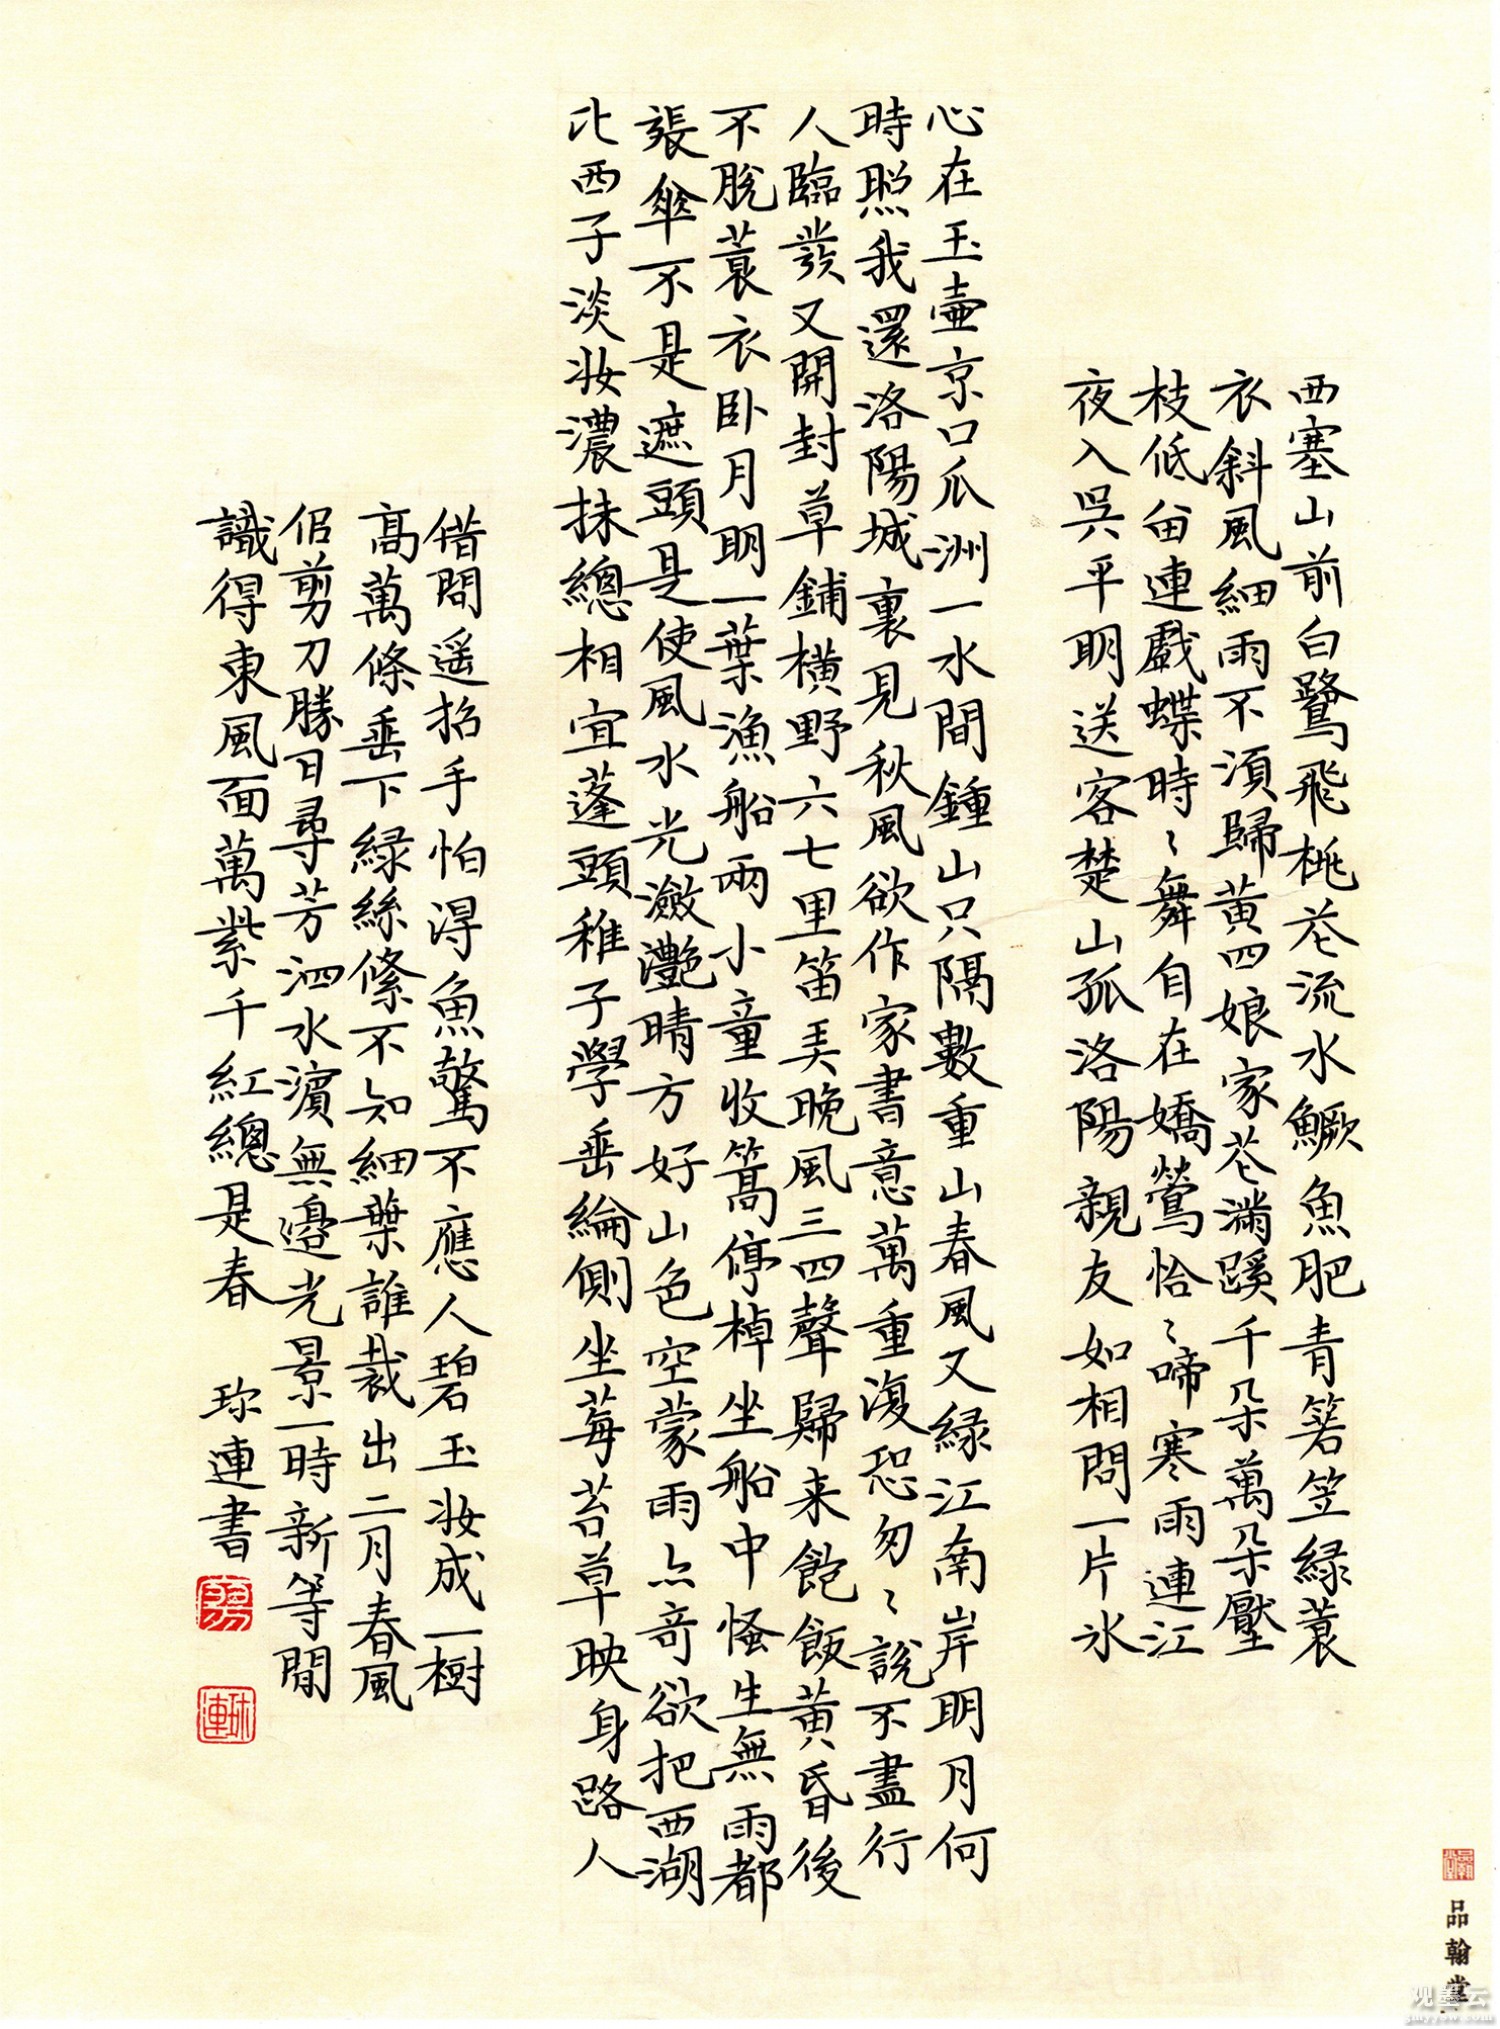 西塞山前白鷺飛桃花流水鱖魚肥青箬笠緑蓑
衣斜風細雨不須歸黄四娘家花滿蹊千朵萬朵壓
枝低留連戲蝶時〻舞自在嬌鶯恰〻啼寒雨連江
夜入吴平明送客楚山孤洛陽親友如相問一片冰
心在玉壺京口瓜洲一水間鍾山只隔數重山春風又緑江南岸明月何
時照我還洛陽城裏見秋風欲作家書意萬重復恐匆〻説不盡行
人臨發又開封草鋪横野六七里笛弄晚風三四聲歸来飽飯黄昏後
不脱蓑衣卧月明一葉漁船兩小童收篙停棹坐船中怪生無雨都
張傘不是遮頭是使風水光瀲灧晴方好山色空蒙雨亦奇欲把西湖
比西子淡妝濃抹總相宜蓬頭稚子學垂綸側坐莓苔草映身路人
借問遥招手怕得魚驚不應人碧玉妝成一樹
高萬條垂下緑絲絛不知細葉誰裁出二月春風
佀剪刀勝日尋芳泗水濱無邊光景一時新等閒
識得東風面萬紫千紅總是春 珎連書
品翰堂
观墨云